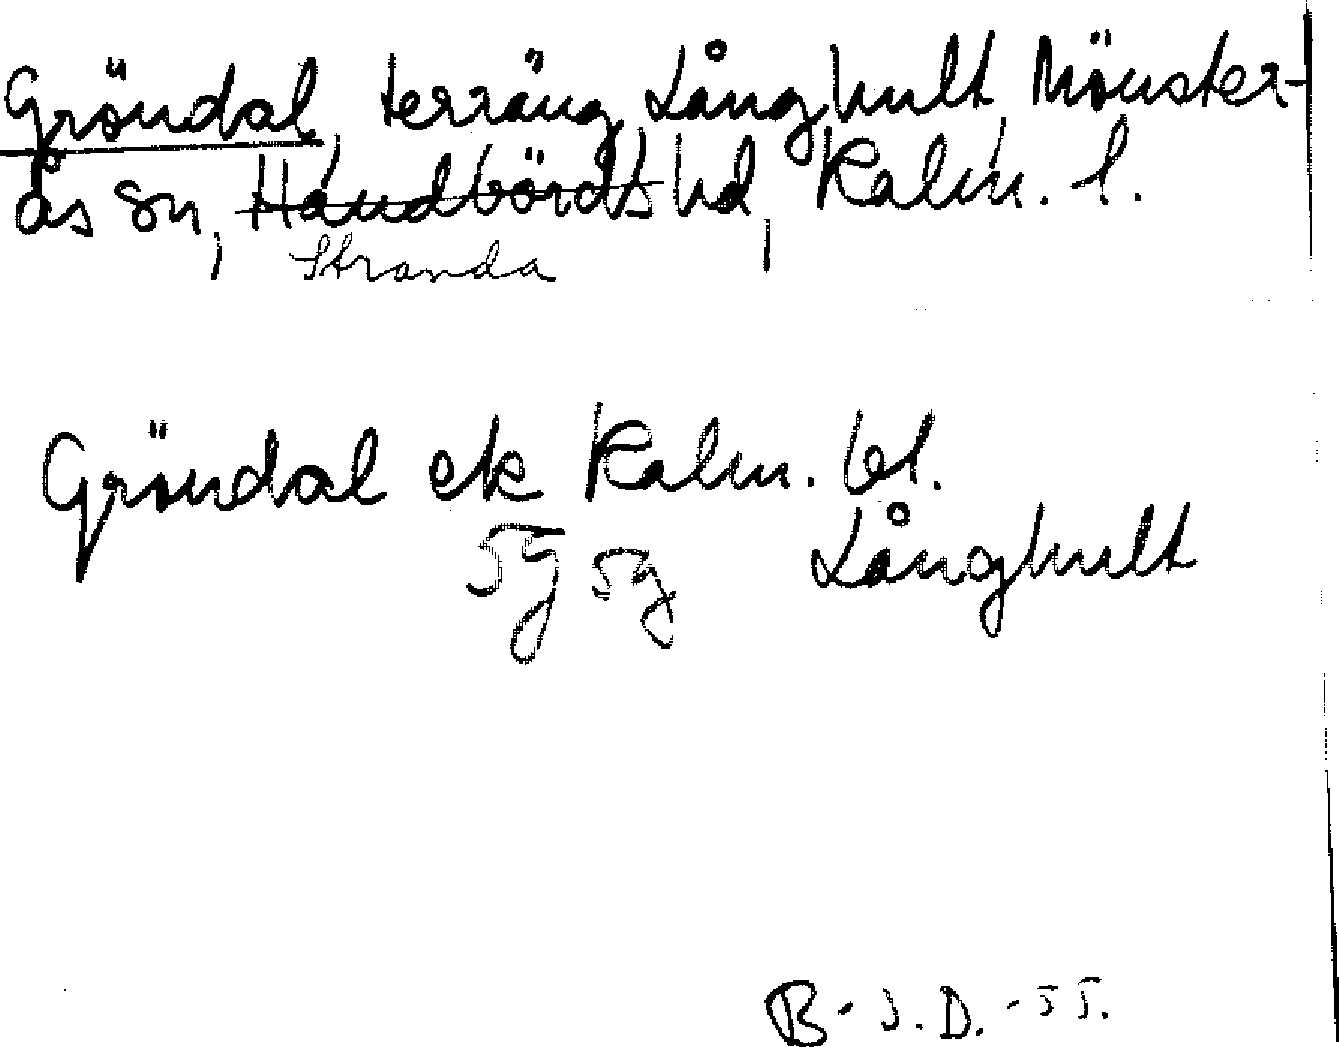 Gröndal, terräng Långhult, Mönster-
ås sn, Handbörds hd, Kalm. l.
Stranda
Gröndal ek Kalm. bl.
5g 5g Långhult
B. J. D. -55.